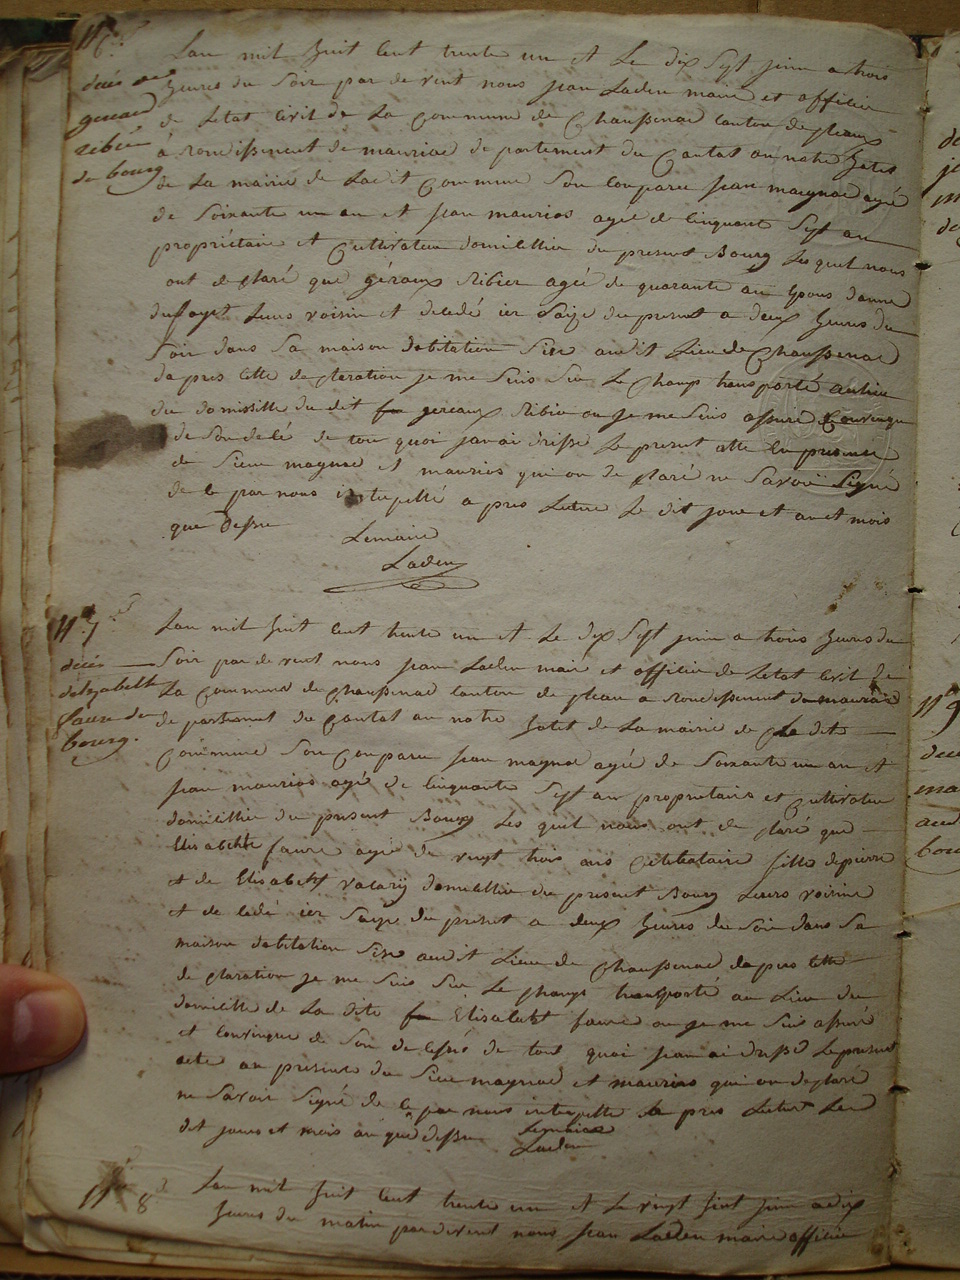 N° 6
decès de
geraud
ribier
du bourg
Lan mil huit Cent trente un et Le dix Sept juin a trois
heures du Soir par de vent nous jean Laden maire et officier
de Letat Civil de La Commune de Chaussenac Canton de pleaux
à rondissement de mauriac de partement du Cantal au notre hotel
de La mairie de Ladit Commune Son Comparu jean magnac agé
de Soixante un an et jean maurios agé de Cinquante Sept an
propriétaire et Cultivateur domicillier du present Bourg Les quel nous
ont de claré que géraux Ribier agée de quarante an Epous danne
dufayet Leurs voisin et decedé ier Saize du present a deux heures du
Soir dans Sa maison dabitation Sise audit Lieu de Chaussenac
dapres Cette de claration je me Suis Sur Le Champ transporté au lieu
du domissille du dit geraux Ribier ou je me Suis assuré Convinqu
de Son de cé de tou quoi janai drissé Le present atte En presence
de Sieur magnac et maurios qui on de claré ne Savoir Signé
de ce par nous interpellé a pres Lecture Le dit jour et an et mois
que Dessu
Lemaire
Laden
N° 7
decès
delizabelt
faure du
bourg.
Lan mil huit Cent trente un et Le dix Sept juin a trois heures du
Soir par de vent nous jean Laden mair et officier de Letat Civil de
La Commune de Chaussenac Canton de pleau a rondissement de mauriac
de partement du Cantal au notre hotel de La mairie de La dite
Commune Son Comparu jean magnac agée de Soixante un an et
jean maurios agé de Cinquante Sept an proprietaire et Cultivateur
domicillier du present Bourg Les quel nous ont de claré que
Elisabeht faure agée de vingt trois ans Celibataire fille de pierre
et de Elisabeht valarij domicillier du present Bourg Leurs voisine
et de cedé ier Saize du present a deux heures du Soir dans Sa
maison dabitation Sise audit Lieu de Chaussenac dapres Cette
de claration je me Suis Sur Le Champs transporté au Lieu du
domicille de La dite Elisabeht faure ou je me Suis assuré
et Convinque de Son de cesés de tout quoi jean ai drissé Le present
acte an presence du Sieur magnac et maurios qui on declaré
ne Savoir Signé de ce par nous interpelle a pres Lecture Les
dit jours et mois an que dessu Lemaire
Laden
N° 8
Lan mil huit Cent trente un et Le vingt Sint juin a dix
heures du matin par devent nous jean Laden maire officier